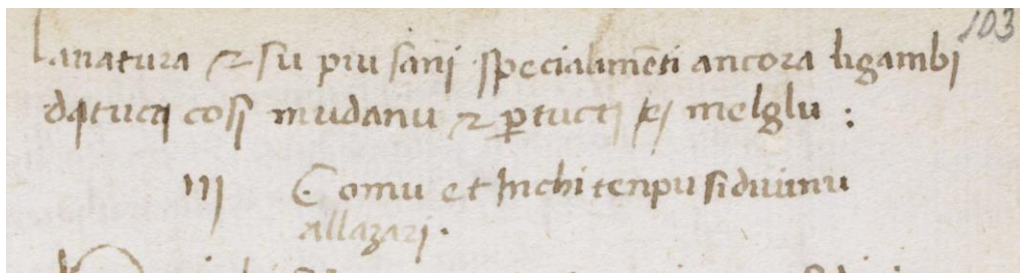 103
lanatura & su piu sani spetialimēti ancora ligambi
datucti cosi mudanu & ꝑ tucti eⱼ melglu :
III Comu et Inchi tenpu si divinu
allazari .